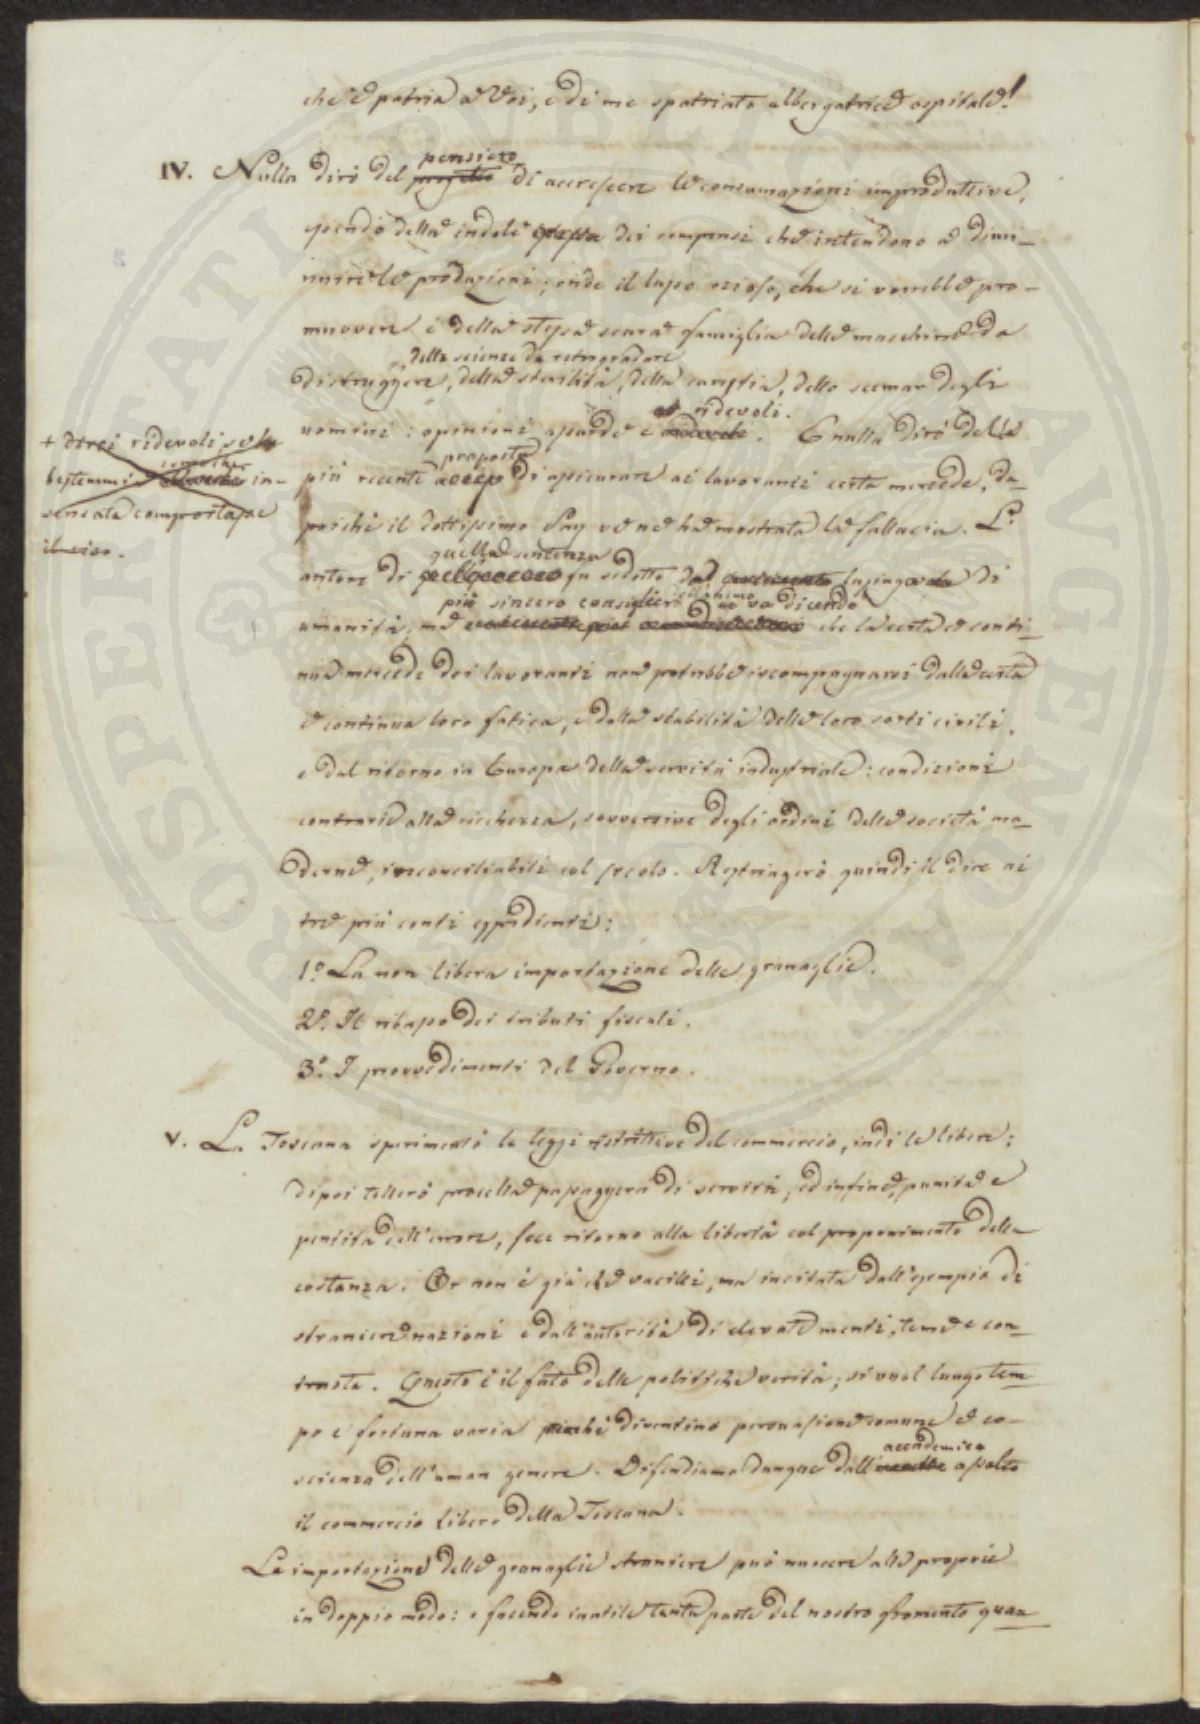 che è patria a Voi, e di me spatriato albergatrice ospitale!
IV. Nulla dirò del pensiero progetto di accrescere le consumazioni improduttive,
essendo della indole stessa dei compensi che intendono a dimi-
nuire le produzioni; onde il lusso ozioso, che si vorrebbe pro-
muovere è della stessa scura famiglia delle macchine da
distruggere, delle scienze da retrogradare, della sterilità, della carestia, dello scemar degli
uomini: opinioni assurde e ridevoli. E nulla dirò della
+ Direi ridevoli se la
bestemmia in-
sensata comportasse
il riso.
più recente proposta di assicurare ai lavoranti certa mercede, da-
poichè il dottissimo Say ve ne ha mostrata la fallacia. L'
autore di quella sentenza fu sedotto da lusinga di
umanità; ma più sincero consiglier va dicendo che la certa e conti-
nua mercede dei lavoranti non potrebbe iscompagnarsi dalla certa
e continua loro fatica, e dalla stabilità delle loro sorti civili,
e dal ritorno in Europa della servitù industriale: condizioni
contrarie alla ricchezza, sovversive degli ordini delle società mo-
derne, irreconciliabili col secolo. Restringerò quindi il dire ai
tre più conti espedienti:
1.º La non libera importazione delle granaglie.
2.º Il ribasso dei tributi fiscali.
3.º I provvedimenti del Governo.
V. La Toscana sperimentò le leggi restrittive del commercio, indi le libere;
dipoi tollerò procella passaggera di servitù, ed infine, punita e
pentita dell'errore, fece ritorno alla libertà col proponimento della
costanza. Or non è già che vacilli, ma incitata dall'esempio di
straniere nazioni e dall'autorità di elevate menti, teme e con-
trasta. Questo è il fato delle politiche verità; si vuol lungo tem-
po e fortuna varia perchè diventino persuasione comune e co-
scienza dell'uman genere. Difendiamo dunque dall'accademico assalto
il commercio libero della Toscana.
La importazione delle granaglie straniere può nuocere alle proprie
in doppio modo: o facendo inutile tanta parte del nostro frumento quan-